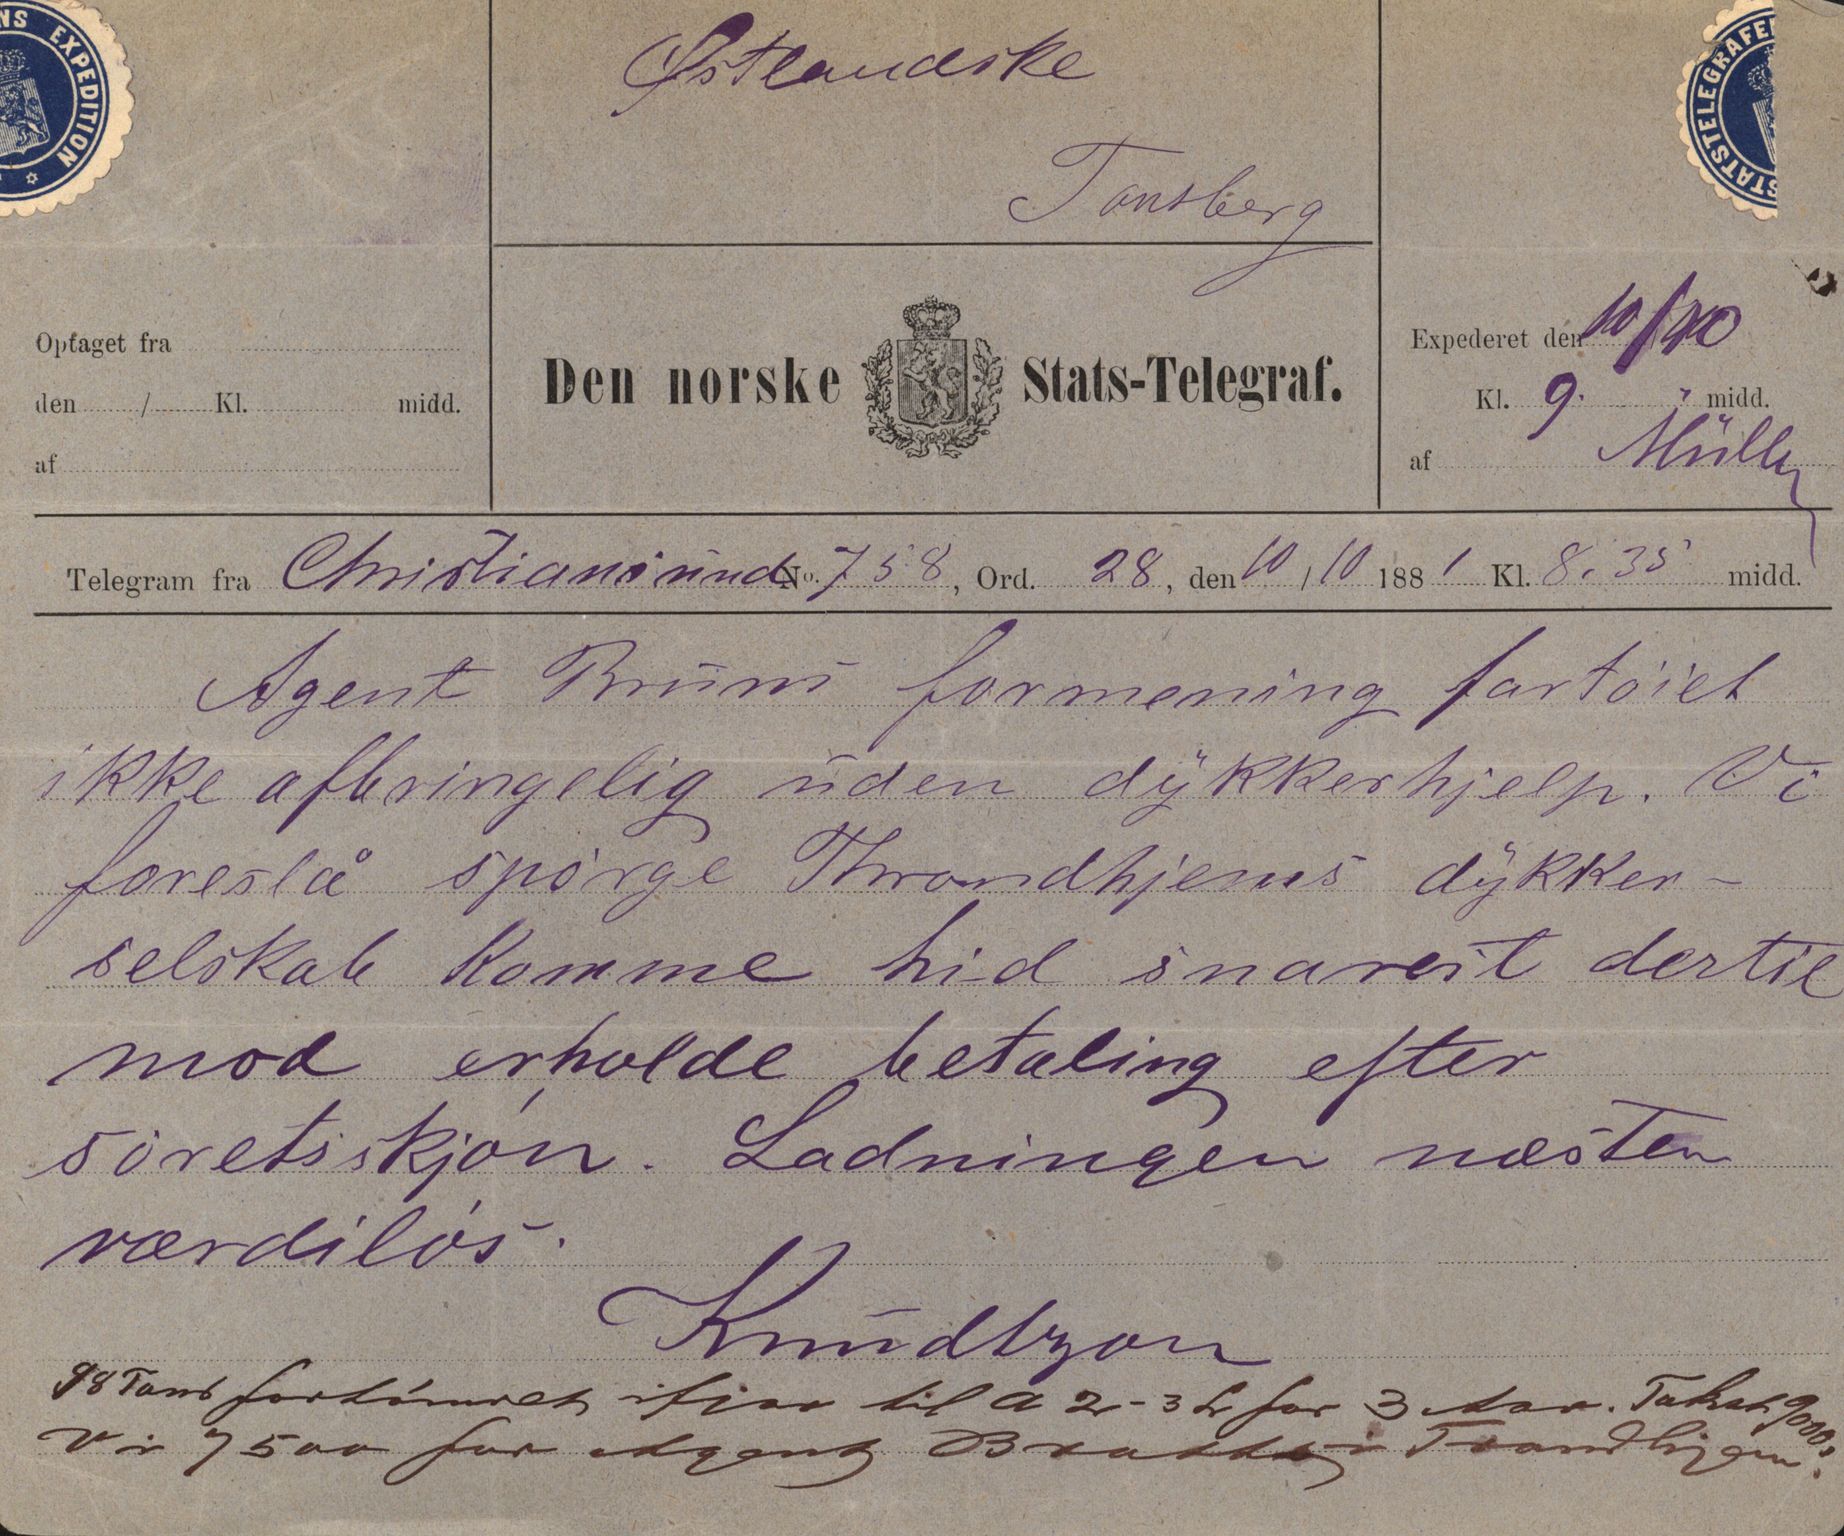 NS EXPEDITION
STATSTELEGRAFE
Østlandske
Tønsberg
Optaget fra
den / Kl. midd.
af
Den norske Stats-Telegraf.
Expederet den 10/10
Kl. 9. midd.
af Müller
Telegram fra Christiansund No. 758, Ord. 28, den 10/10 1881 Kl. 8.35 midd.
Agent Bruns formening fartöiet
ikke afbringelig uden dykkerhjelp. Vi
foreslå spörge Throndhjems dykker-
selskab komme hid snarest dertil
mod erholde betaling efter
söretsskjön. Ladningen næsten
værdilös.
Knudtzon
98 Tons fortömret ifjor til A 2 - 3 for 3 Aar. Takst 9000.
Vi 7500 for Agent i Trondhjem.